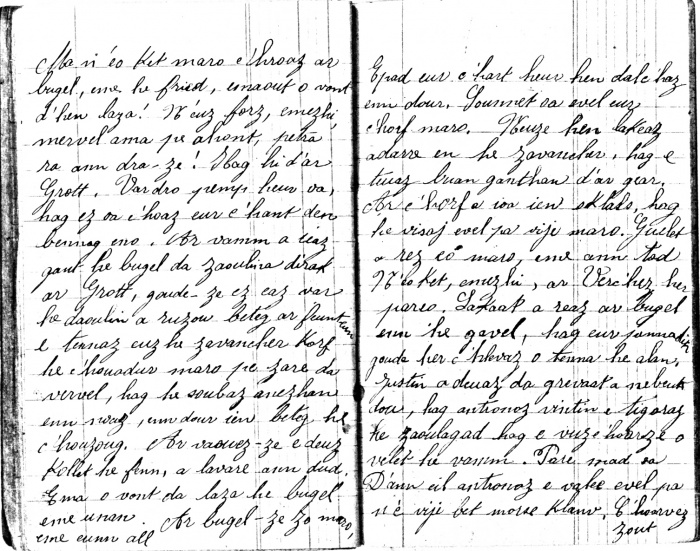 Ma n'éo ket maro c'hroaz ar
bugel, eme he fried, emaout o vont
d'hen laza! N'euz forz, emezhi,
mervel ama pe ahont, petra
ra ann dra-ze! Hag hi d'ar
Grott. Vardro pemp heur oa,
hag ez oa c'hoaz eur c'hant den
bennag eno. Ar vamm a ieaz
gant he bugel da zaoulina dirak
ar Grott, goude-ze ez eaz var
he daoulin a ruzou beteg ar feunteun
e tennaz euz he zavancher korf
he c'hrouadur maro pe zare da
vervel, hag he soubaz anezhan
enn noaz, enn dour ien beteg he
c'houzoug. Ar vaouez-ze e deuz
kollet he fenn, a lavare ann dud.
Ema o vont da laza he bugel
eme unan. Ar bugel-ze zo maro,
eme eunn all
Epad eur c'hart heur hen dalc'haz
enn dour. Lounmet oa evel eur
c'horf maro. Neuze hen lakeaz
adarre en he zavancher, hag e
teuaz buan ganthan d'ar gear.
Ar c'horf a ioa ien sklas, hag
he visaj evel pa vije maro. Guelet
a rez eo maro, eme ann tad
N'eo ket, emezhi, ar Verc'hez her
pareo. Lakaat a reaz ar bugel
enn he gavel, hag eur pennadig
gouda her c'hlevaz o tenna he alan.
Justin a deuaz da grevaat a nebeut
dou, hag antronoz vintin e tigoraz
he zaoulagad hag e vuze c'hoarze o
velet he vamm. Pare mad oa
D'ann eil antronoz e valee evel pa
n'e vije bet morse klanv. C'hoarvez
zout